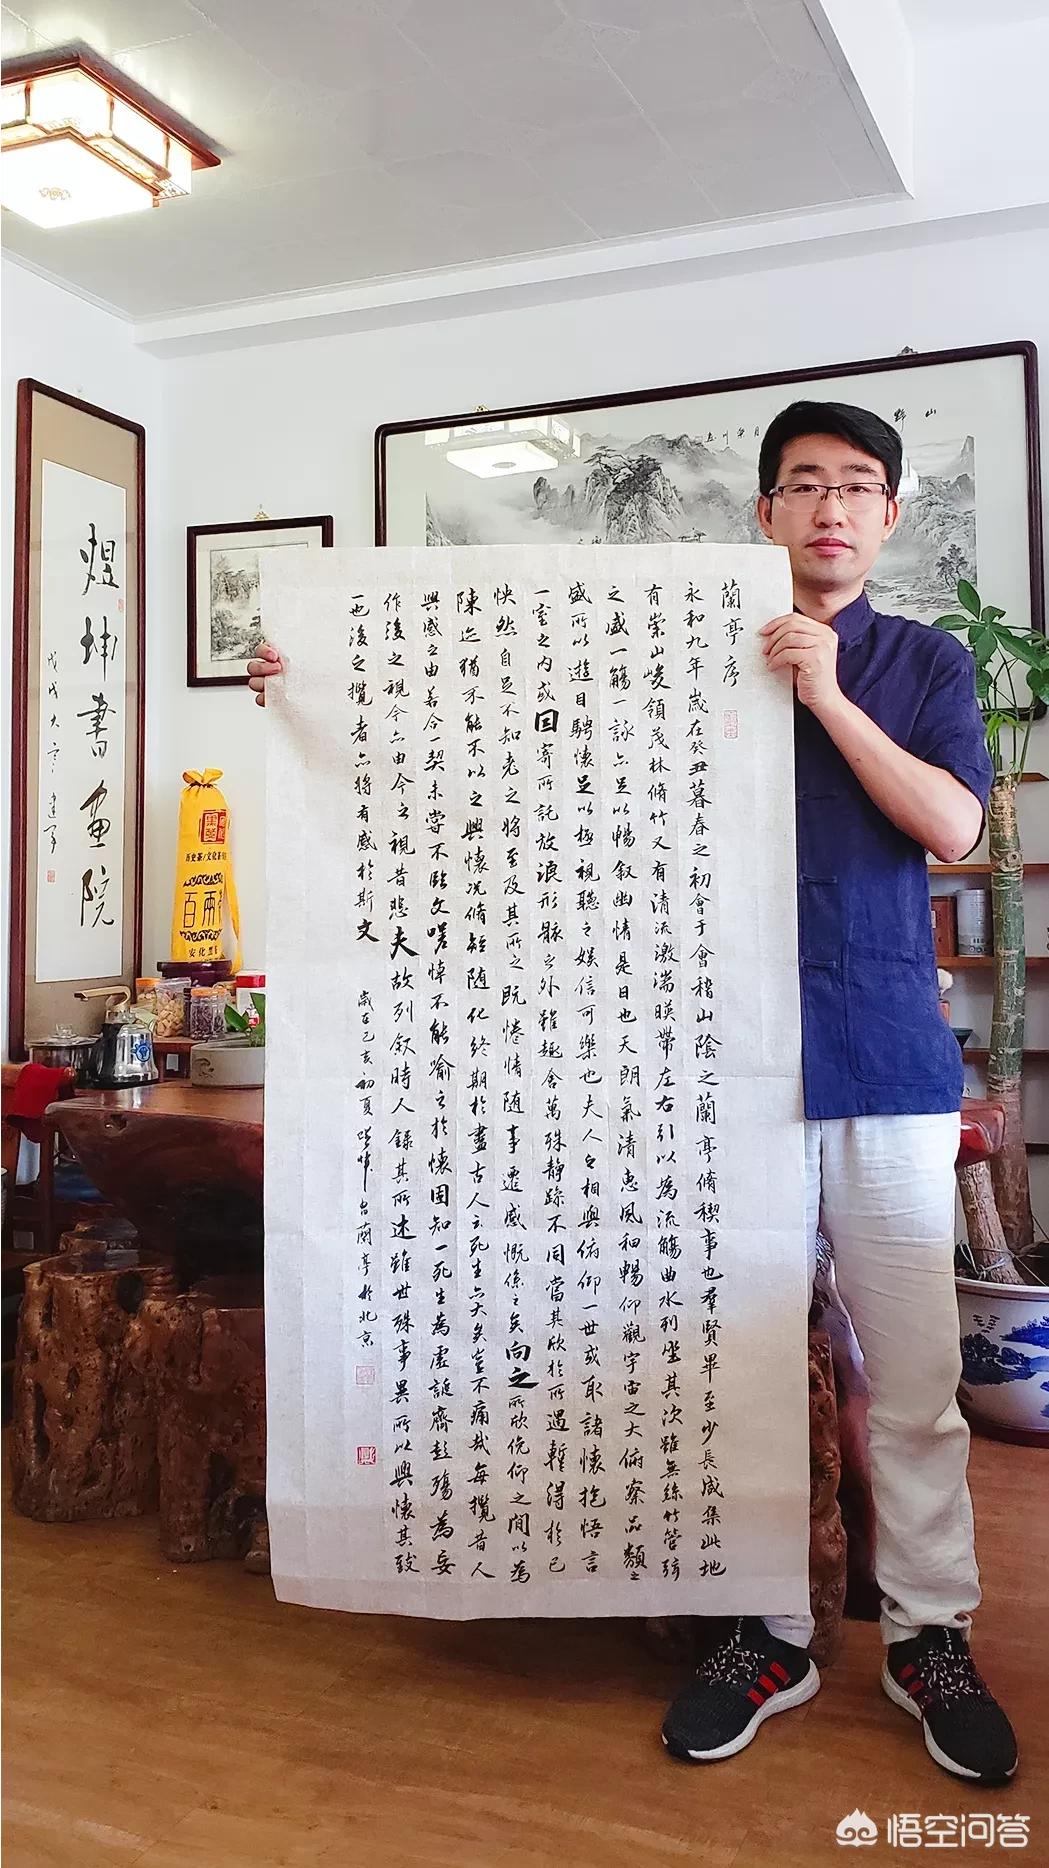 煜坤書画院
戊戌大雪
蘭亭序
永和九年歲在癸丑暮春之初會于會稽山陰之蘭亭脩禊事也羣賢畢至少長咸集此地
有崇山峻領茂林脩竹又有清流激湍暎帶左右引以為流觴曲水列坐其次雖無絲竹管弦
之盛一觴一詠亦足以暢叙幽情是日也天朗氣清惠風和暢仰觀宇宙之大俯察品類之
盛所以遊目騁懷足以極視聽之娛信可樂也夫人之相與俯仰一世或取諸懷抱悟言
一室之內或因寄所託放浪形骸之外雖趣舍萬殊静躁不同當其欣於所遇蹔得於己
怏然自足不知老之將至及其所之既惓情随事遷感慨係之矣向之所欣俛仰之閒以為
陳迹猶不能不以之興懷况脩短随化終期於盡古人云死生亦大矣豈不痛哉每攬昔人
興感之由若合一契未嘗不臨文嗟悼不能喻之於懷固知一死生為虛誕齊彭殤為妄
作後之視今亦由今之視昔悲夫故列叙時人錄其所述雖世殊事異所以興懷其致
一也後之攬者亦將有感於斯文
歲在己亥初夏 蘭亭於北京
历史茶/文化茶
百兩茶
安化黑
悟空问答